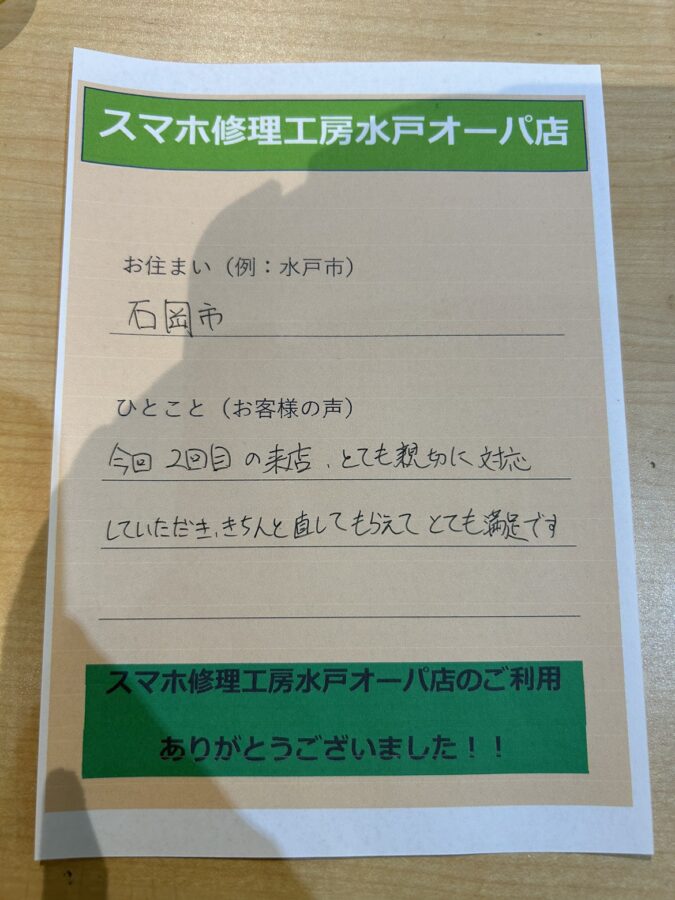 スマホ修理工房水戸オーパ店
お住まい（例：水戸市）
石岡市
ひとこと（お客様の声）
今回 2回目の来店、とても親切に対応
していただき、きちんと直してもらえて とても満足です
スマホ修理工房水戸オーパ店のご利用
ありがとうございました！！